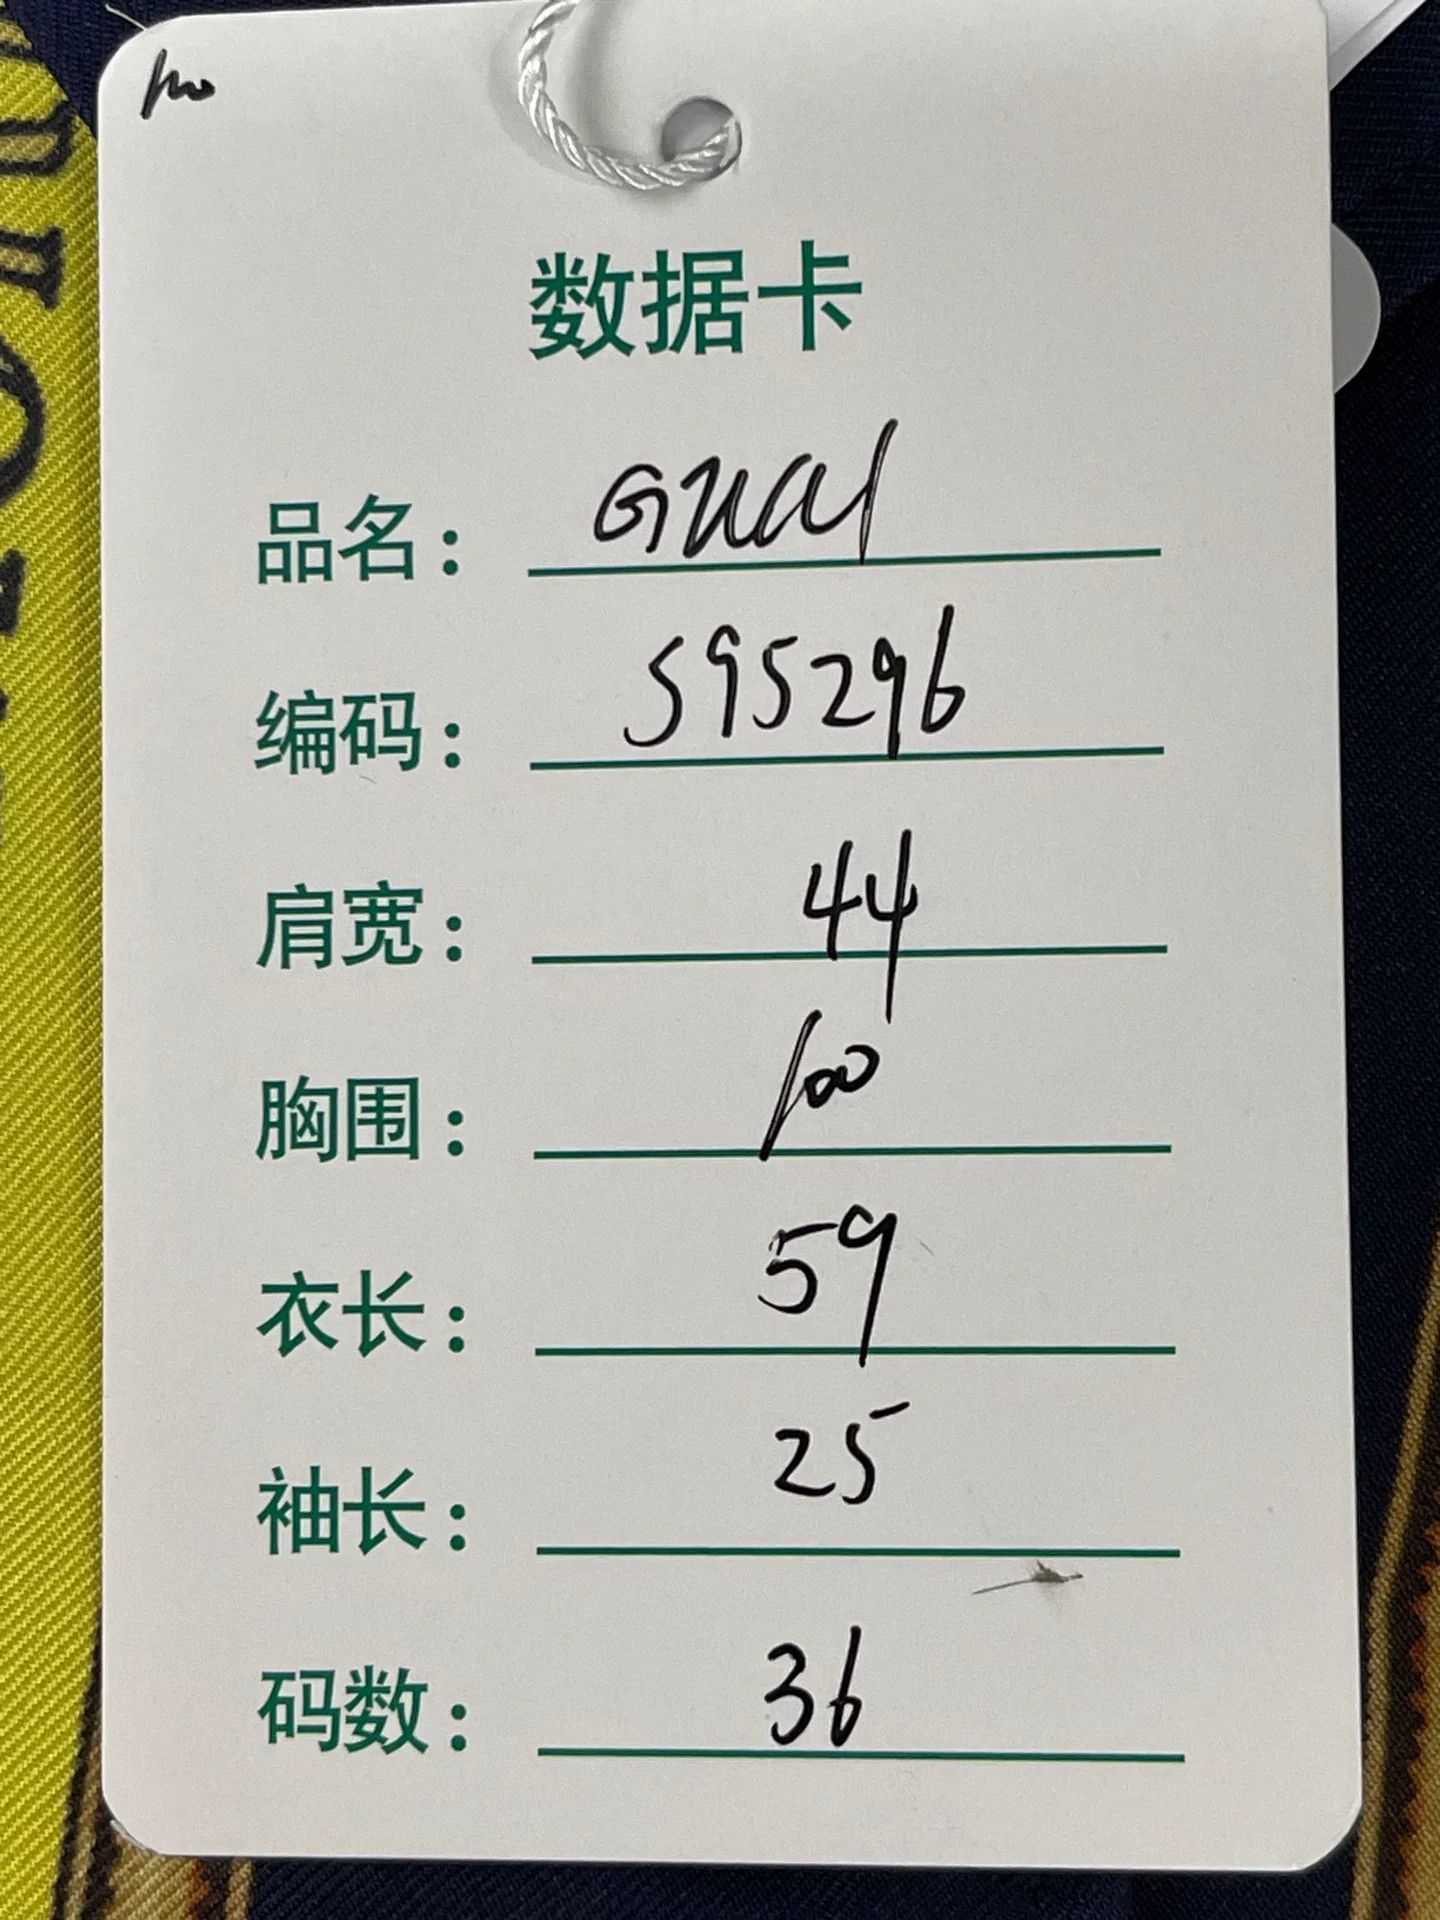 数据卡
品名：Gucci
编码：595296
肩宽：44
胸围：100
衣长：59
袖长：25
码数：36